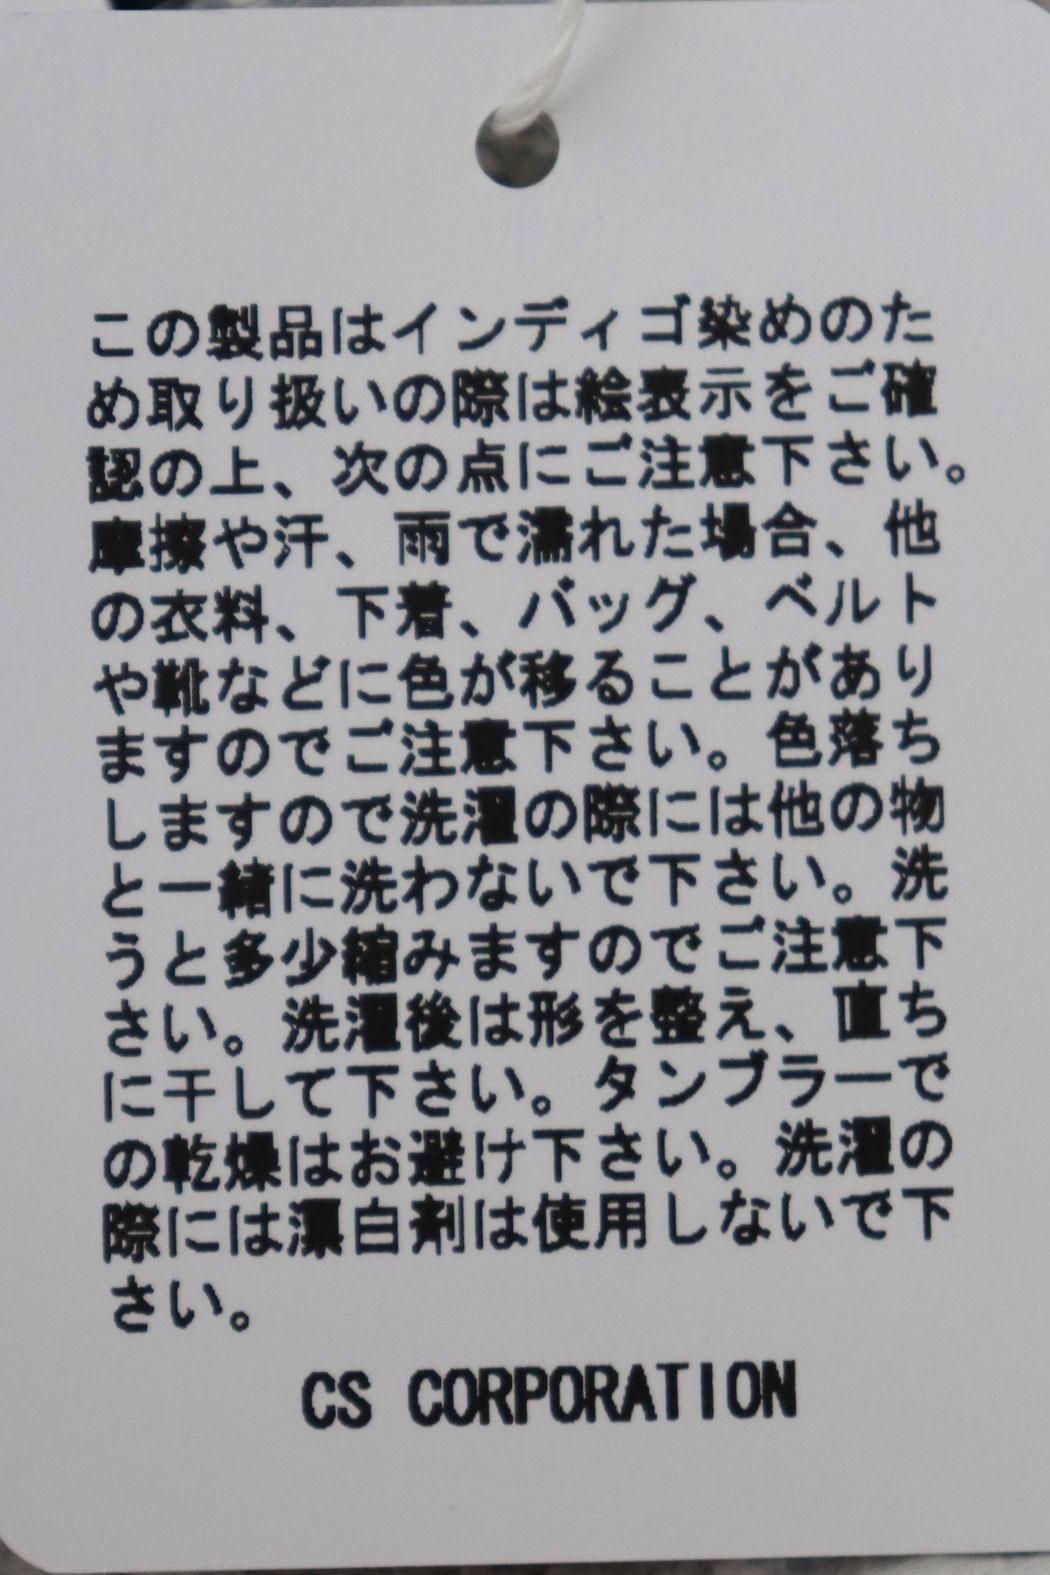 この製品はインディゴ染めのた
め取り扱いの際は絵表示をご確
認の上、次の点にご注意下さい。
摩擦や汗、雨で濡れた場合、他
の衣料、下着、バッグ、ベルト
や靴などに色が移ることがあり
ますのでご注意下さい。色落ち
しますので洗濯の際には他の物
と一緒に洗わないで下さい。洗
うと多少縮みますのでご注意下
さい。洗濯後は形を整え、直ち
に干して下さい。タンブラーで
の乾燥はお避け下さい。洗濯の
際には漂白剤は使用しないで下
さい。
CS CORPORATION